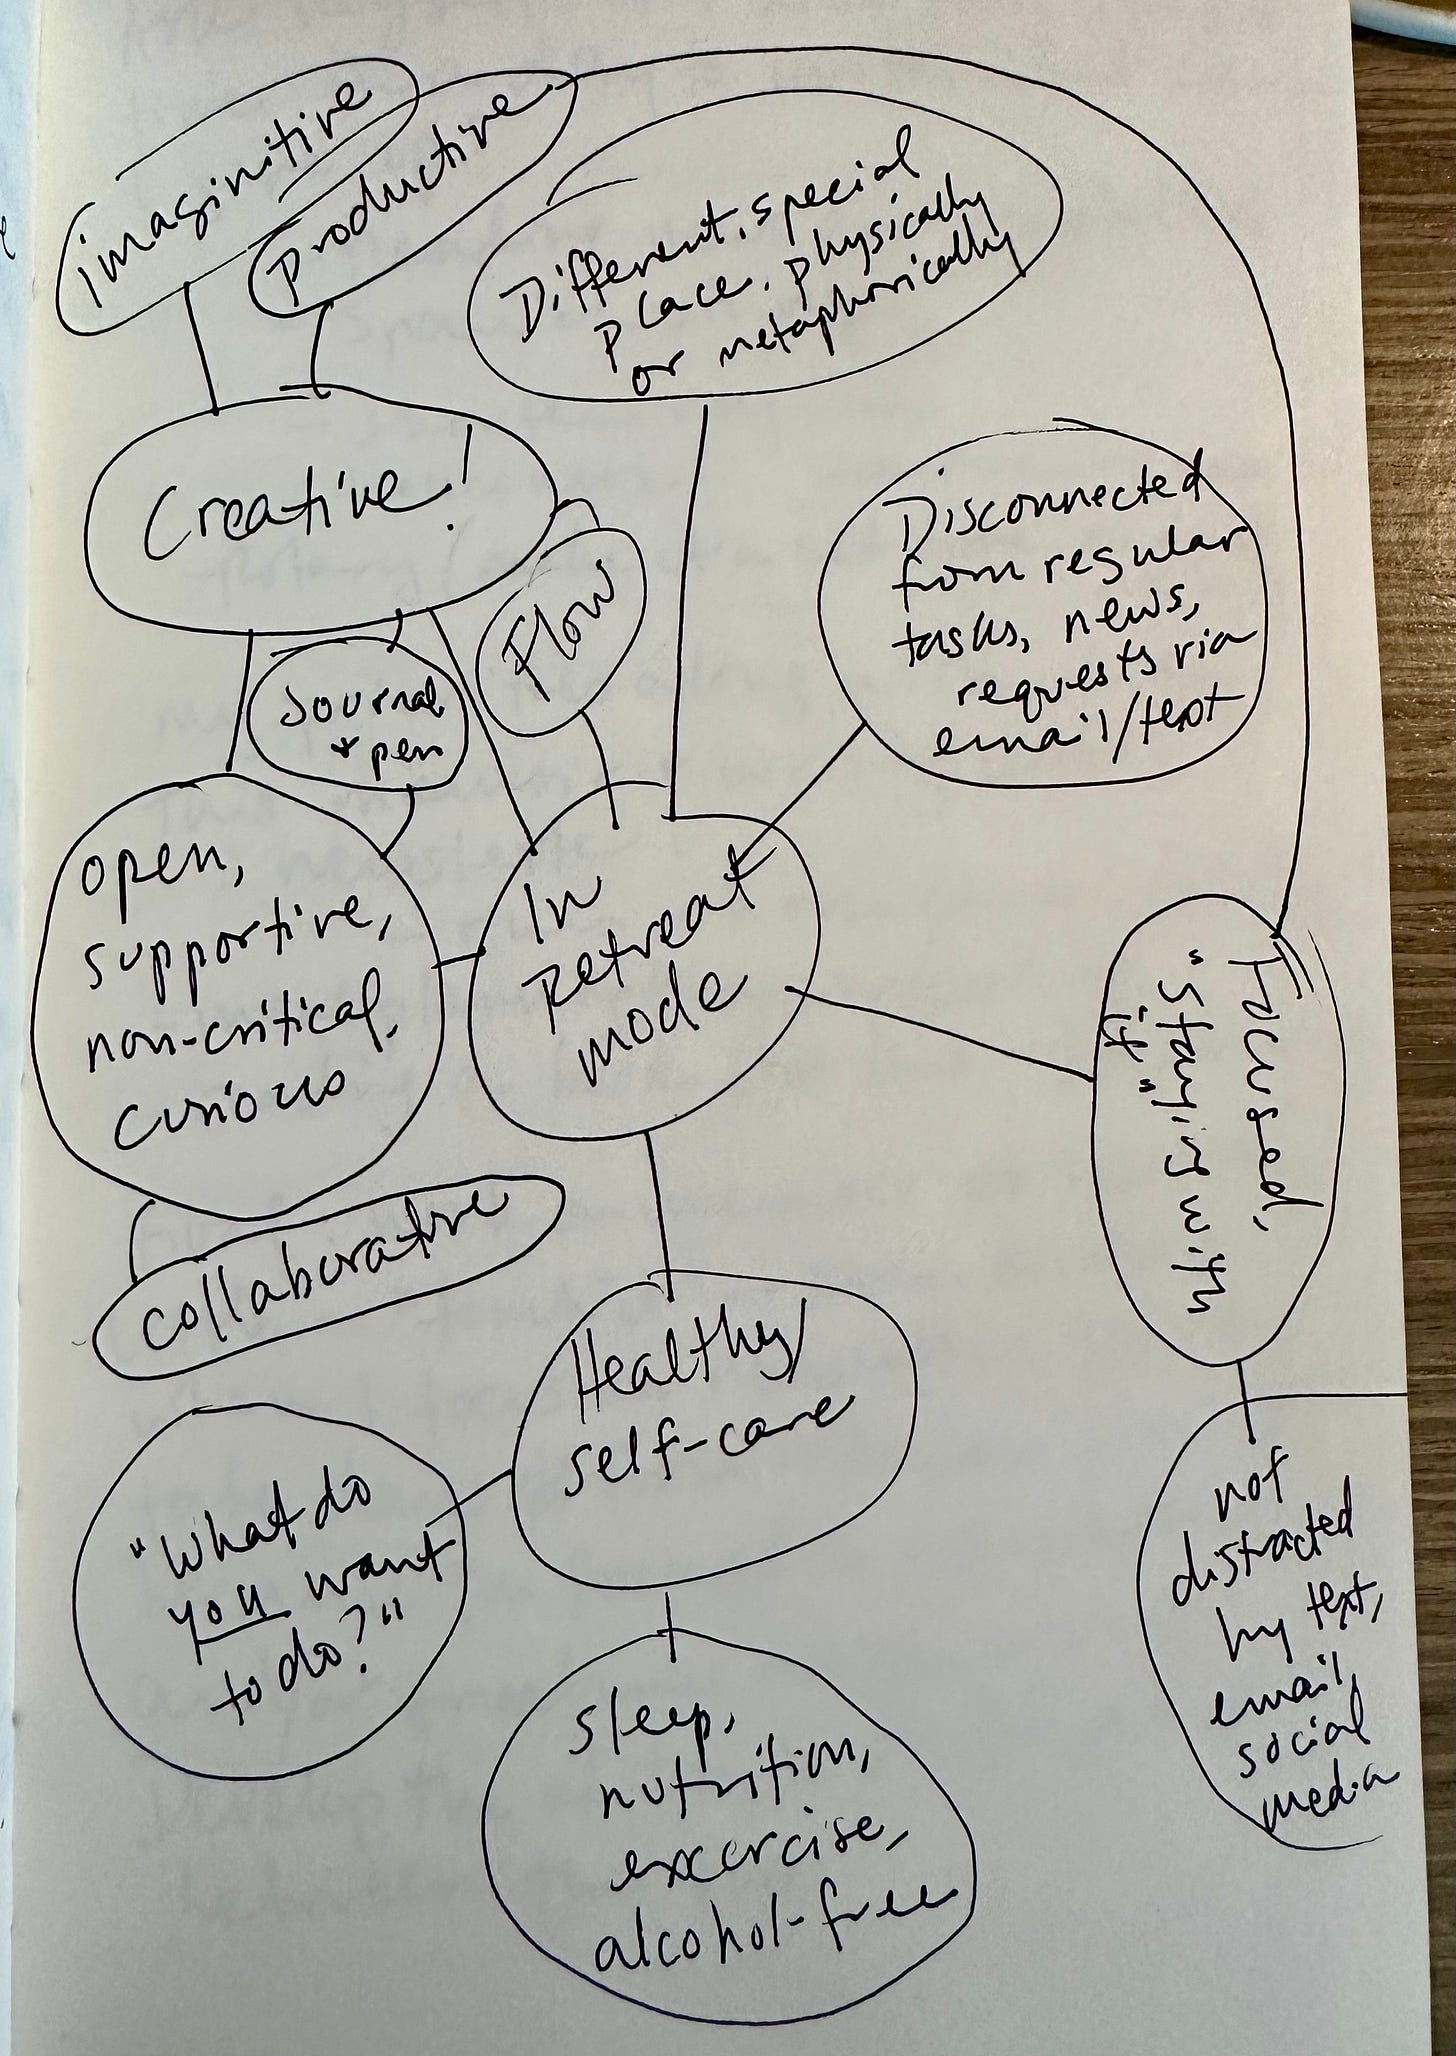 imaginitive
productive
Different, special
place, physically
or metaphorically
Creative!
Disconnected
from regular
tasks, news,
requests via
email/text
Flow
Journal
+ pen
open,
supportive,
non-critical.
curious
In
Retreat
mode
Focused,
"Staying with
it"
collaborative
Healthy/
self-care
"What do
you want
to do?"
not
distracted
by text,
email,
social
media
sleep,
nutrition,
excercise,
alcohol-free